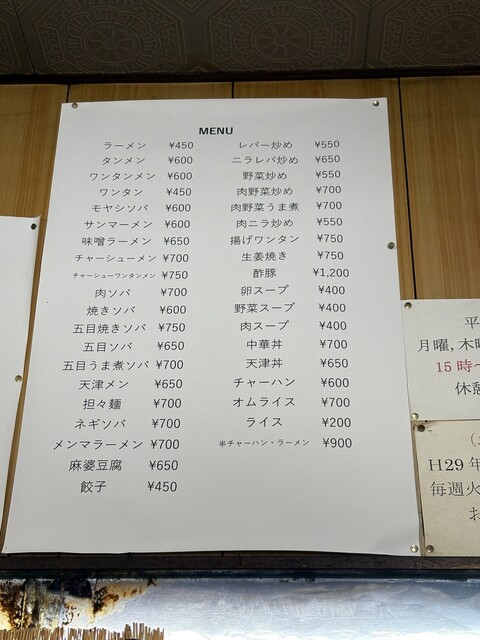 MENU
ラーメン ¥450
タンメン ¥600
ワンタンメン ¥600
ワンタン ¥450
モヤシソバ ¥600
サンマーメン ¥600
味噌ラーメン ¥650
チャーシューメン ¥700
チャーシューワンタンメン ¥750
肉ソバ ¥700
焼きソバ ¥600
五目焼きソバ ¥750
五目ソバ ¥650
五目うま煮ソバ ¥700
天津メン ¥650
担々麺 ¥700
ネギソバ ¥700
メンマラーメン ¥700
麻婆豆腐 ¥650
餃子 ¥450
レバー炒め ¥550
ニラレバ炒め ¥650
野菜炒め ¥550
肉野菜炒め ¥700
肉野菜うま煮 ¥700
肉ニラ炒め ¥550
揚げワンタン ¥750
生姜焼き ¥750
酢豚 ¥1,200
卵スープ ¥400
野菜スープ ¥400
肉スープ ¥400
中華丼 ¥700
天津丼 ¥650
チャーハン ¥600
オムライス ¥700
ライス ¥200
半チャーハン・ラーメン ¥900
平
月曜,木曜
15時~
休憩
H29年
毎週火
お